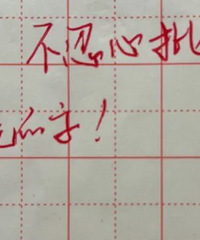 不忍心批
的字！